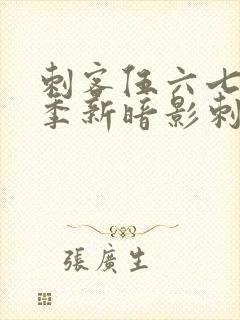 刺客伍六七
季新暗影刺
張廣生